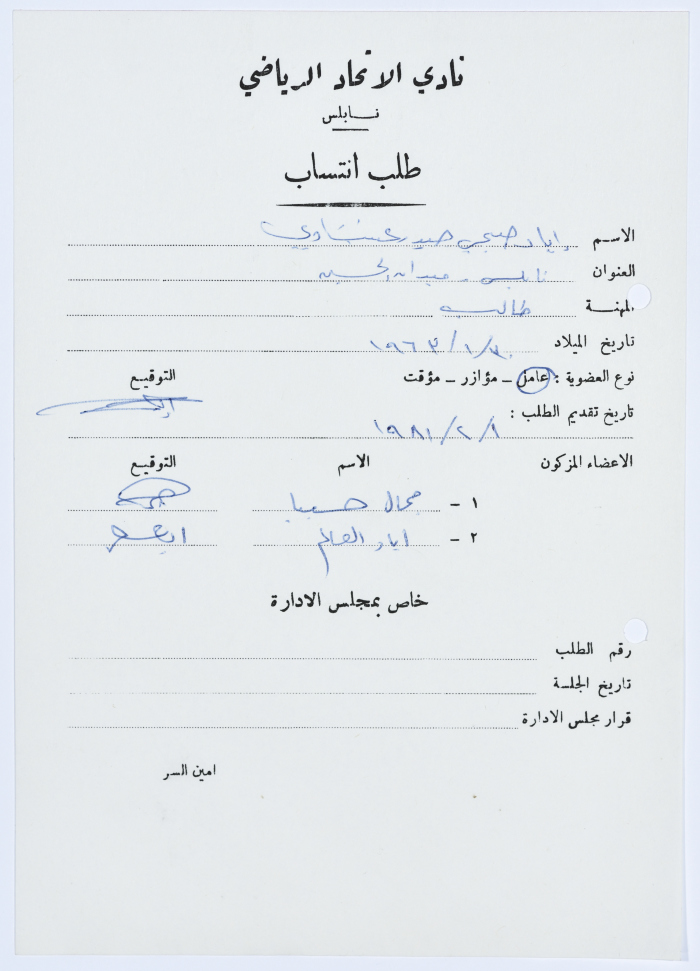 نادي الاتحاد الرياضي
نابلس
طلب انتساب
الاسم إياد صبحي حيدر عنبتاوي
العنوان نابلس - ميدان الحسين
المهنة طالب
تاريخ الميلاد ١٩٦٣/١/٣٠
نوع العضوية : عامل - مؤازر - مؤقت التوقيع
تاريخ تقديم الطلب :
١٩٨١/٢/١
الاعضاء المزكون الاسم التوقيع
١ - جمال
٢ - اياد العالم
خاص بمجلس الادارة
رقم الطلب
تاريخ الجلسة
قرار مجلس الادارة
امين السر